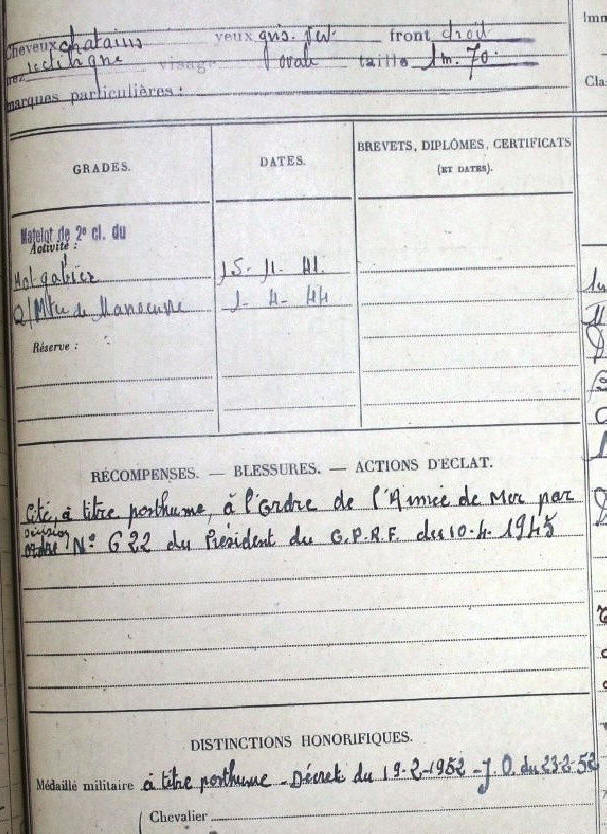 Imm
Cheveux chatains yeux gris. vert front droit
nez rectiligne visage ovale taille 1m. 70.
marques particulières :
Cla
GRADES.
DATES.
BREVETS, DIPLÔMES, CERTIFICATS
(ET DATES).
Matelot de 2e cl. du
Activité :
Mot gabier 15. 11. 41.
Q/Mtre de Manoeuvre 1- 4- 44
Réserve :
RÉCOMPENSES. — BLESSURES. — ACTIONS D'ÉCLAT.
Cité, à titre posthume, à l'Ordre de l'Armée de Mer par
décision
ordre N° 622 du Président du G.P.R.F. du 10-4. 1945
DISTINCTIONS HONORIFIQUES.
Médaillé militaire à titre posthume - Décret du 19-2-1952 - J.O. du 23-2-52
Chevalier